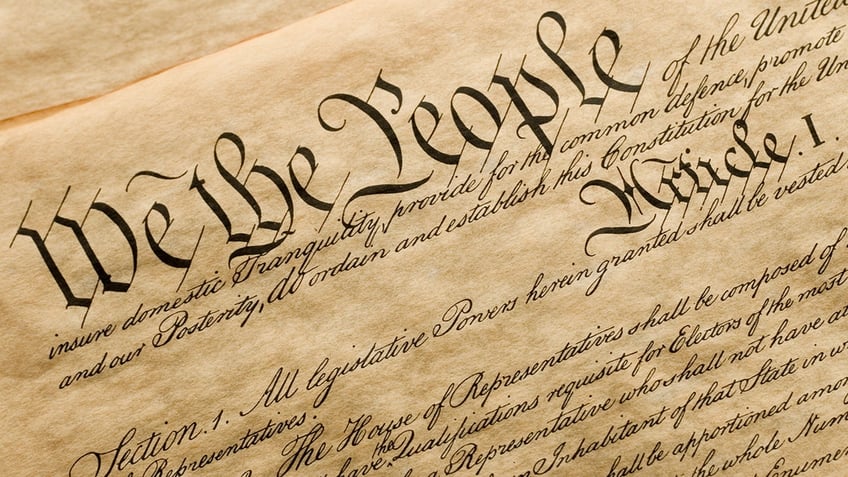 We the People of the United
insure domestic Tranquility, provide for the common defence, promote
and our Posterity, do ordain and establish this Constitution for the Un
Article. I.
Section. 1. All legislative Powers herein granted shall be vested
of Representatives.
The House of Representatives shall be composed of
have the Qualifications requisite for Electors of the most
a Representative who shall not have at
an Inhabitant of that State in w
shall be apportioned amon
the whole Num
Enumer